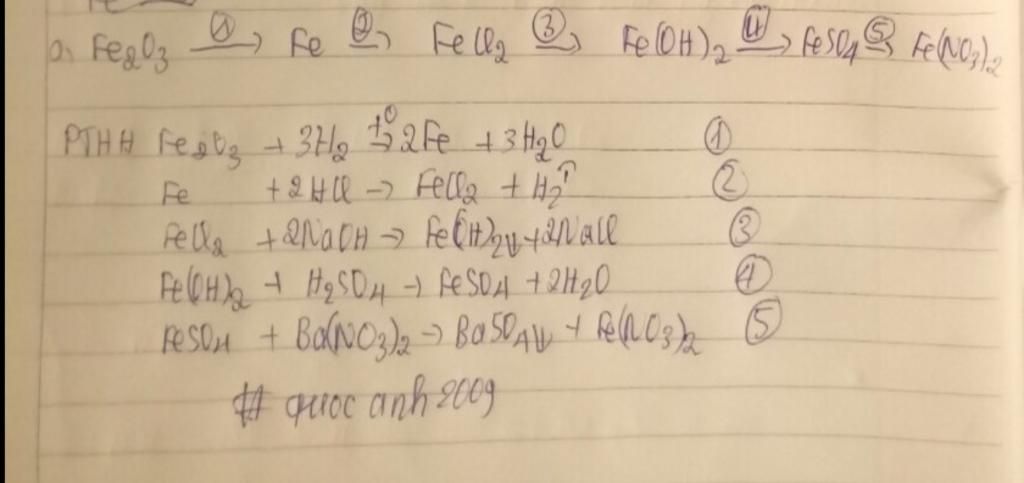 a, Fe2O3 ①→ Fe ②→ FeCl2 ③→ Fe(OH)2 ④→ FeSO4 ⑤→ Fe(NO3)2
PTHH Fe2O3 + 3H2 t°→ 2Fe + 3H2O ①
Fe + 2HCl → FeCl2 + H2↑ ②
FeCl2 + 2NaOH → Fe(OH)2↓ + 2NaCl ③
Fe(OH)2 + H2SO4 → FeSO4 + 2H2O ④
FeSO4 + Ba(NO3)2 → BaSO4↓ + Fe(NO3)2 ⑤
# quoc anh 2009